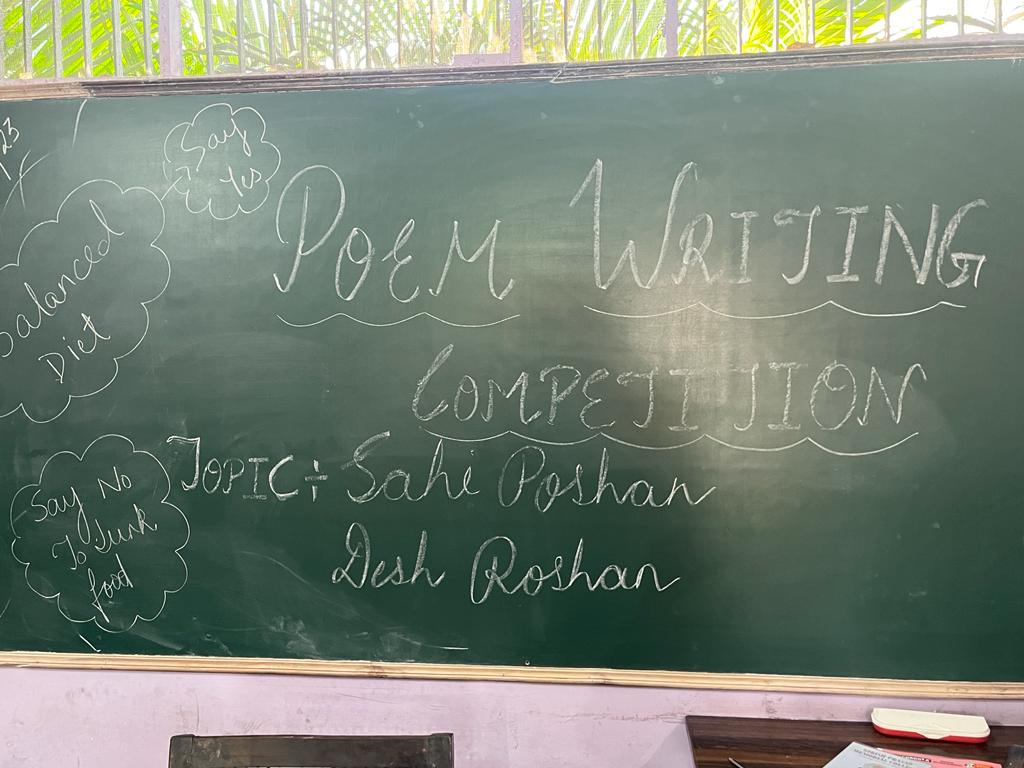 23
Say
Yes
Balanced
Diet
POEM WRITING
COMPETITION
TOPIC÷ Sahi Poshan
Desh Roshan
Say No
To Junk
food